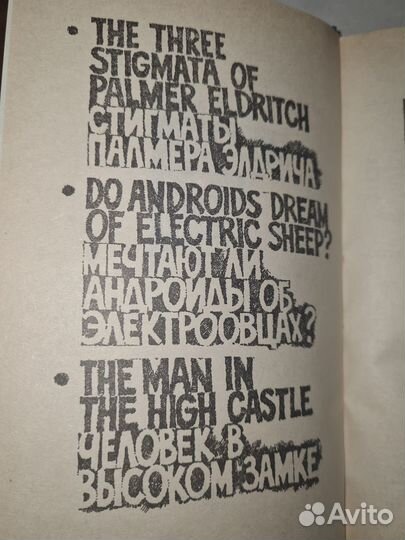 • THE THREE
STIGMATA OF
PALMER ELDRITCH
СТИГМАТЫ
ПАЛМЕРА ЭЛДРИЧА
• DO ANDROIDS DREAM
OF ELECTRIC SHEEP?
МЕЧТАЮТ ЛИ
АНДРОИДЫ ОБ
ЭЛЕКТРООВЦАХ?
• THE MAN IN
THE HIGH CASTLE
ЧЕЛОВЕК В
ВЫСОКОМ ЗАМКЕ
Avito